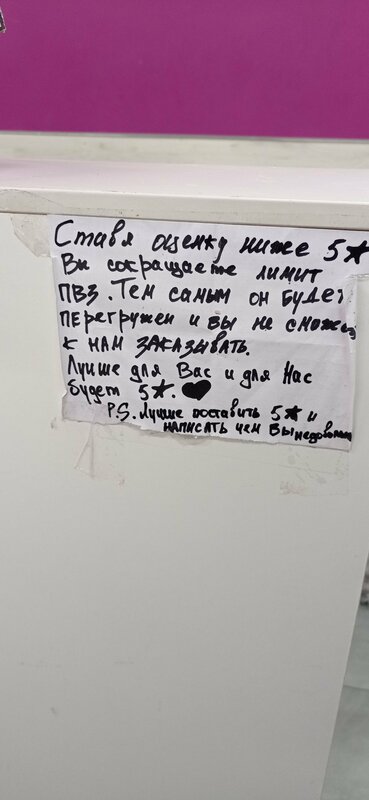 Ставя оценку ниже 5★
Вы сокращаете лимит
ПВЗ. Тем самым он будет
перегружен и вы не сможете
к нам заказывать.
Лучше для Вас и для Нас
будет 5★. ♥
P.S. Лучше поставить 5★ и
написать чем Вы недовольны